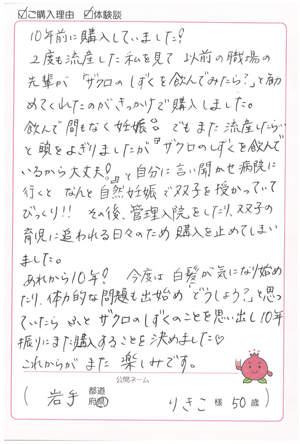 ☑ご購入理由 ☑体験談
10年前に購入していました!
2度も流産した私を見て 以前の職場の
先輩が「ザクロのしずくを飲んでみたら?」と勧
めてくれたのがきっかけで購入しました。
飲んで間もなく妊娠!! でもまた流産したら…
と頭をよぎりましたが『ザクロのしずくを飲んで
いるから大丈夫!!』と自分に言い聞かせ病院に
行くと なんと自然妊娠で双子を授かっていて
びっくり!! その後、管理入院をしたり、双子の
育児に追われる日々のため購入を止めてしまい
ました。
あれから10年? 今度は白髪が気になり始め
たり、体力的な問題も出始め「どうしよう?」と思っ
ていたら ふとザクロのしずくのことを思い出し10年
振りにまた購入することを決めました♡
これからがまた楽しみです。
公開ネーム
( 岩手 都道府県 りきこ 様 50 歳 )